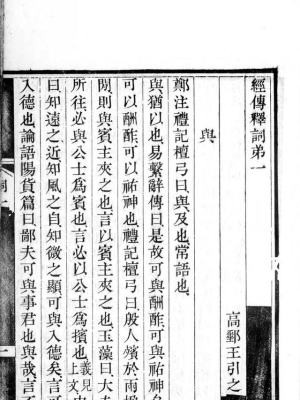 經傳釋詞弟一
高郵王引之
與
鄭注禮記檀弓曰與及也常語也
與猶以也易繫辭傳曰是故可與酬酢可與祐神
可以酬酢可以祐神也禮記檀弓曰殷人殯於兩楹
閒則與賓主夾之也言以賓主夾之也玉藻曰大夫
所往必與公士爲賓也言必以公士爲賓也義見上文
曰知遠之近知風之自知微之顯可與入德矣言可
入德也論語陽貨篇曰鄙夫可與事君也與哉言不